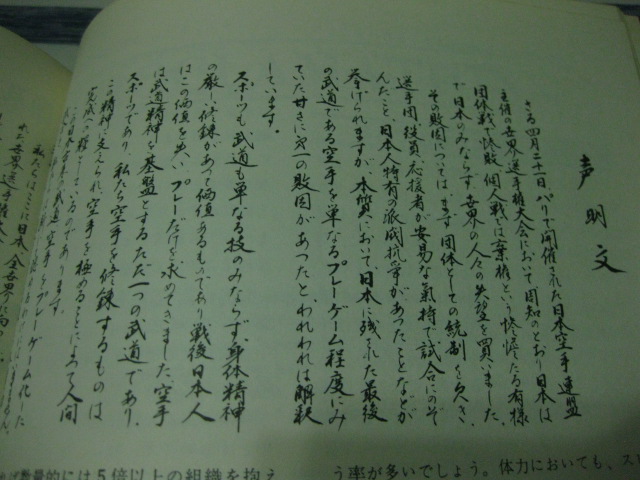 声明文
さる四月二十一日、パリで開催された日本空手連盟
主催の世界選手権大会において周知のとおり日本は
団体戦で惨敗、個人戦では棄権という惨憺たる有様
で日本のみならず、世界の人々の失望を買いました。
その敗因については、まず団体としての統制を欠き、
選手団、役員、応援者が安易な気持で試合にのぞ
んだこと、日本人特有の派閥抗争があったことなどが
挙げられますが、本質において日本に残された最後
の武道である空手を単なるプレーゲーム程度にみ
ていた甘さに第一の敗因があったと、われわれは解釈
しています。
スポーツも武道も単なる技のみならず、身体精神
の厳しい修錬があって価値あるものであり戦後日本人
はこの価値を失い、プレーだけを求めてきました。空手
は武道精神を基盤とするただ一つの武道であり、
スポーツであり、私たち空手を修錬するものは
この精神に支えられ、空手を極めることによって人間
完成への道としているのであります。
日本古来の武道、空手をプレーゲーム化した
私たちはここに日本、全世界に向
世界選手権大会
う率が多いでしょう。体力においても、ス
数量的には5倍以上の組織を抱え